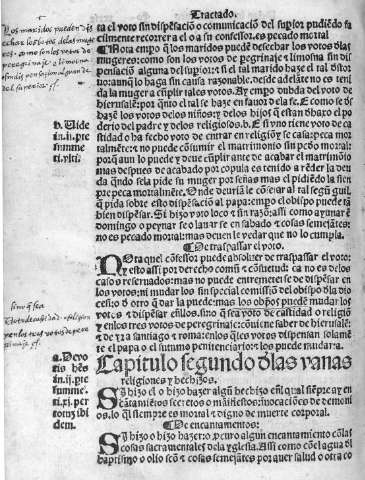 Tractado.
ra el voto sin dispēsaciō o comunicaciō del supior pudiēdo fa
cilmente recorrer a el o a su confessor. es pecado mortal
Nota empo q̄ los maridos puedē desechar los votos d̄las
mugeres: como son los votos de pegrinaje z limosna sin dis
pensaciō alguna del supior: z si el tal marido haze el tal distor
no: aunq̄ lo haga sin causa razonable. desde adelāte no es teni
da la muger a cūplir tales votos. Ay empo dubda del voto de
hierusalē: por q̄nto el tal se haze en fauor d̄ la fe. E como se d̄s
hazē los votos delos niños: y delos hijos q̄ estan d̄baxo el po
derio del padre y delos religiosos. b. E si vno tiene voto de ca
stidad o ha fecho voto de entrar en religiō y se casa: peca mor
talmēte: z no puede cōsumir el matrimonio sin pc̄do mortal:
por q̄ aun lo puede y deue cūplir ante de acabar el matrimōio
mas despues de acabado por copula es tenido a rēder la deu
da q̄ndo se la pide su muger por señas mas el pidiēdo la siem
pre peca mortalmēte. Onde deuria le cōsejar al tal segū guil.
q̄ pida sobre esto dispēsaciō al papa: empo el obispo puede tā
bien dispēsar. Si hizo voto loco z sin razō: assi como ayunar ē
domingo o peynar se o lauar se en sabado z cosas semejātes:
no es pecado mortal: mas deuen le vedar que no lo cumpla.
De traspassar el voto.
Nota quel cōfessor puede absoluer de traspassar el voto:
y esto assi por derecho comū z cōstetud: ca no es delos
caso o reseruados: mas no puede entremeter se de dispēsar en
los votos: ni mudar los sin special comissiō del obispo d̄la dio
cesi o d̄ otro q̄ dar la puede: mas los obpōs puedē mudar los
votos z dispēsar en ellos. sino q̄ sea voto de castidad o religiō
y en los tres votos de peregrinaje: cōuiene saber de hierusalē
z de yra santiago z roma: en los quales votos dispensan solamē
te el papa o el summo penitenciario: z los puede mudar.
Capitulo segundo d̄las vanas
religiones y hechizos.
Si hizo el o hizo hazer algū hechizo en l qual siēpre ay en
cātamiētos secretos o māifiestos: inuocaciōes de demoni
os. lo q̄l siempre es mortal z digno de muerte corporal.
De encantamentos.
Si hizo o hizo hazer: o pcuro algun encantamiento cō las
cosas sacramentales dela yglesia. Assi como cō el agua d̄l
baptismo o olio scrō z cosas semejātes por auer salud o otra co
b. Vide
in. ij. pre
summe.
ti. xi.
a. De vo
tis. hēs
in. ij. pre
summe.
ti. xi. per
totum ibi
dem.